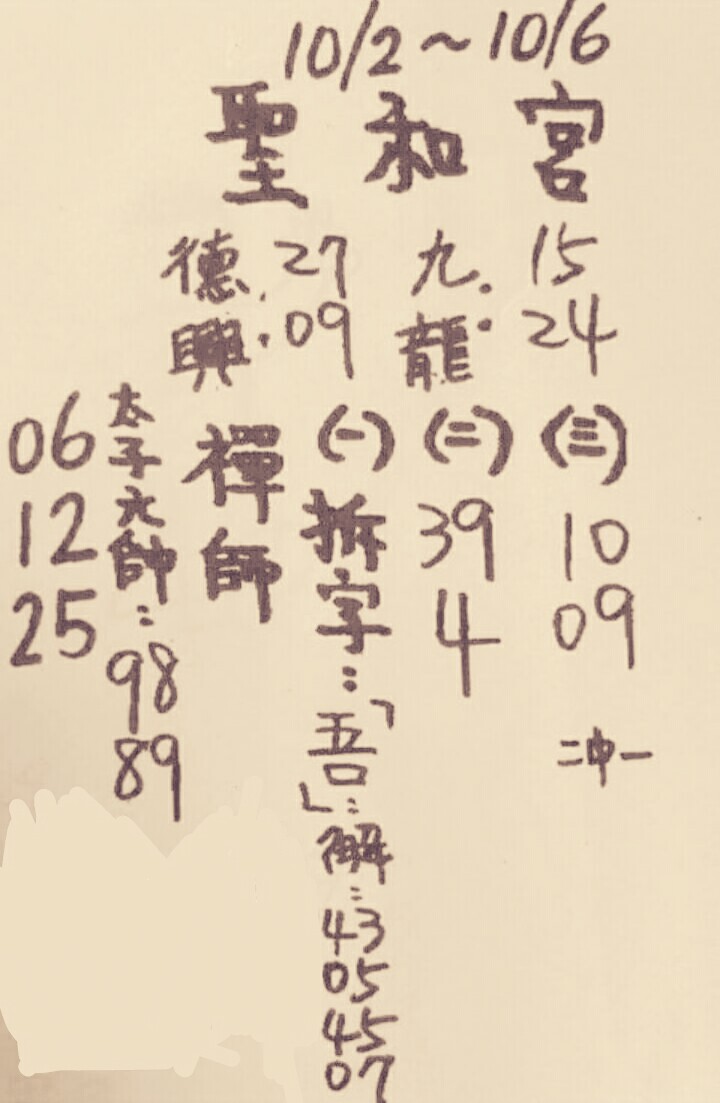 10/2~10/6
聖和宮
九龍: 15 24
德興: 27 09
(三) 10 09
二中一
(二) 39 4
(一) 拆字:「吾」:解: 43 05 45 07
禪師
太子元帥: 98 89
06 12 25